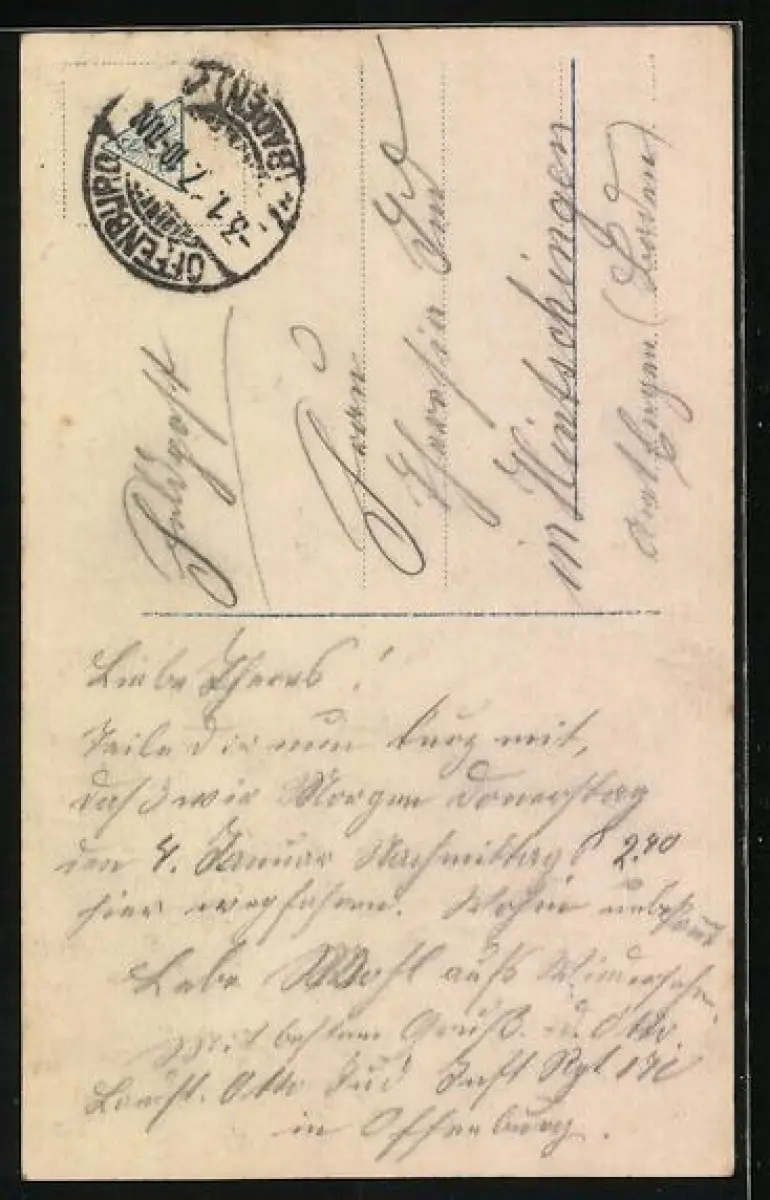 OFFENBURG (BADEN)
-3.1.17. 10-11V
Feldpost
Frau
Theresia Jud
in Hintschingen
Amt Engen. (Baden)
Liebe Theres!
Teile Dir nun kurz mit,
daß wir Morgen Donerstag
den 4. Januar Nachmittag 2.40
hier wegfahren. Wohin unbekannt
Lebe Wohl aufs Wiedersehn.
Mit bestem Gruß. Otto
Landst. Otto Jud Inft Rgt.
in Offenburg.